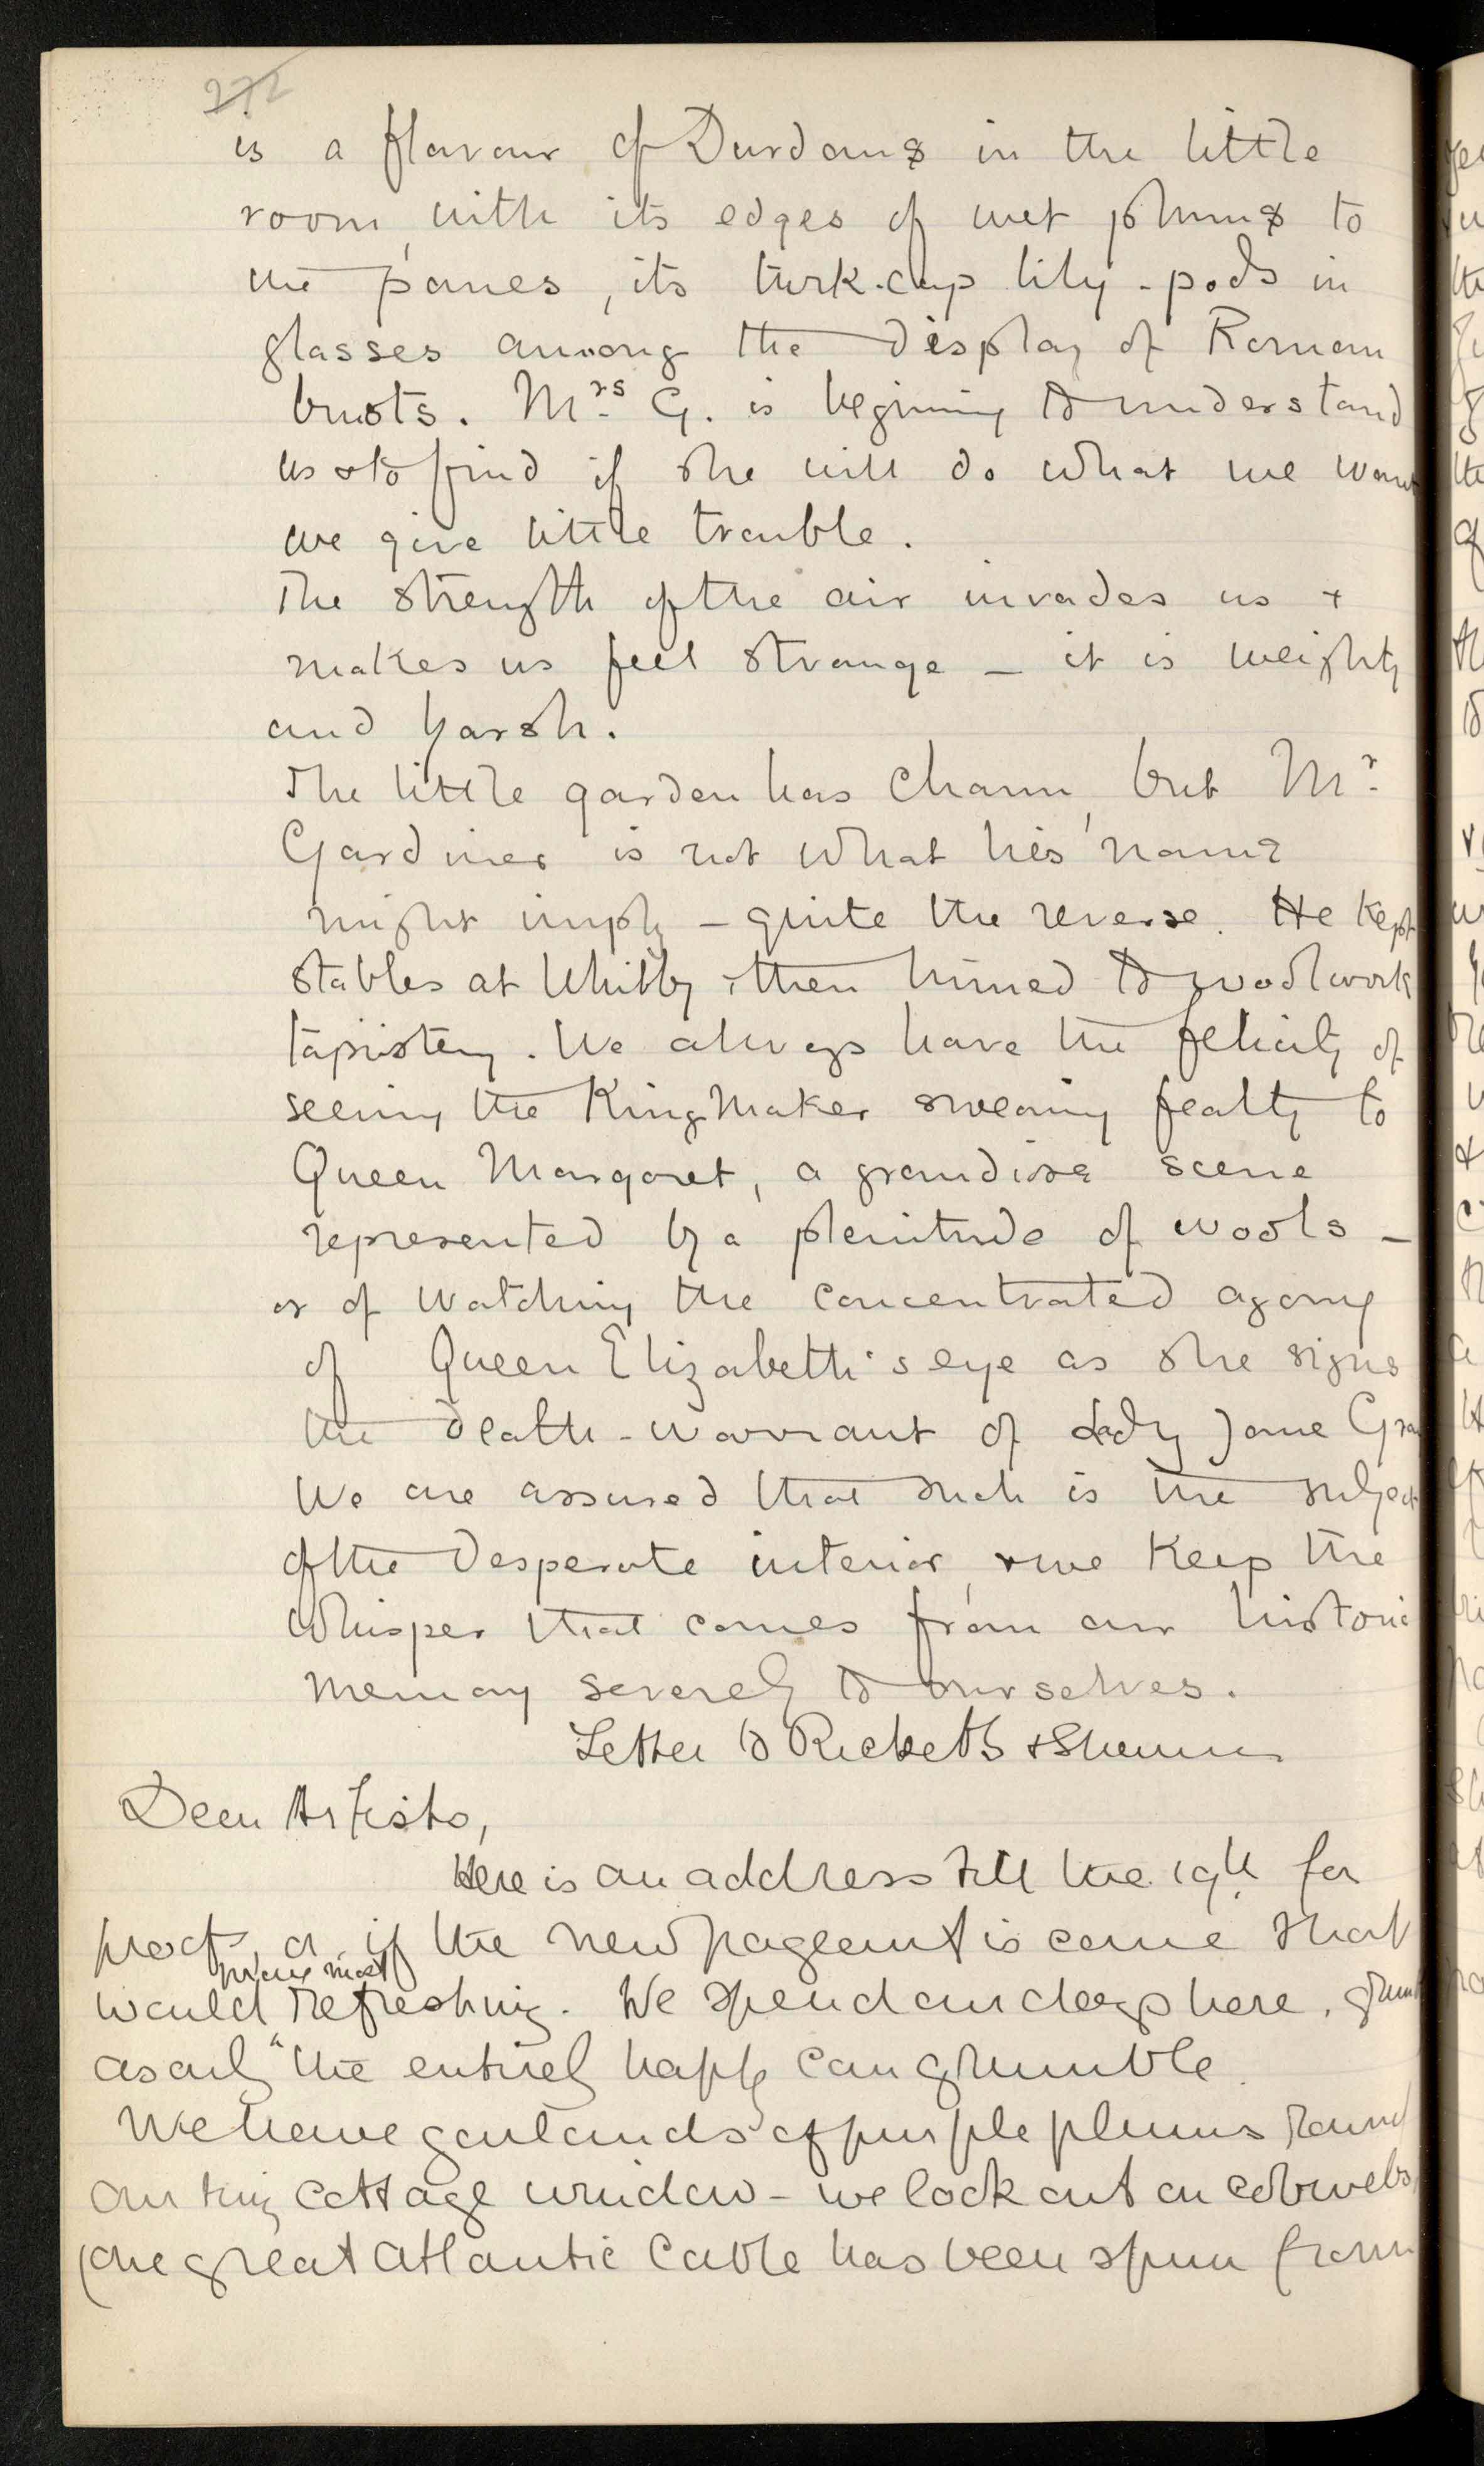 272
is a flavour of Durdans in the little
room, with its edges of wet plums to
the panes, its turk-cap lily-pods in
glasses among the display of Roman
busts. Mrs G. is begining to understand
us & to find if she will do what we want
we give little trouble.
The strength of the air invades us +
makes us feel strange — it is weighty
and harsh.
The little garden has charm, but Mr
Gardiner is not what his name
might imply — quite the reverse. He kept
stables at Whitby, then turned to woolwork
tapistery. We always have the felicity of
seeing the King Maker swearing fealty to
Queen Margaret, a grandiose scene
represented by a plenitude of wools —
or of watching the concentrated agony
of Queen Elizabeth's eye as she signs
the death-warrant of Lady Jane Gra
We are assured that such is the subject
of the desperate interior, & we keep the
whisper that comes from our historic
memory severely to ourselves.
Letter to Ricketts & Shannon
Dear Artists,
Here is an address till the 19th for
proofs, or if the new pageant is come that
prove most
would refreshing. We spend our days here,
as only "the entirely happy can grumble.
We have garlands of purple plums round
our tiny cottage window — we look out on cobwebs,
(one great Atlantic Cable has been spun from